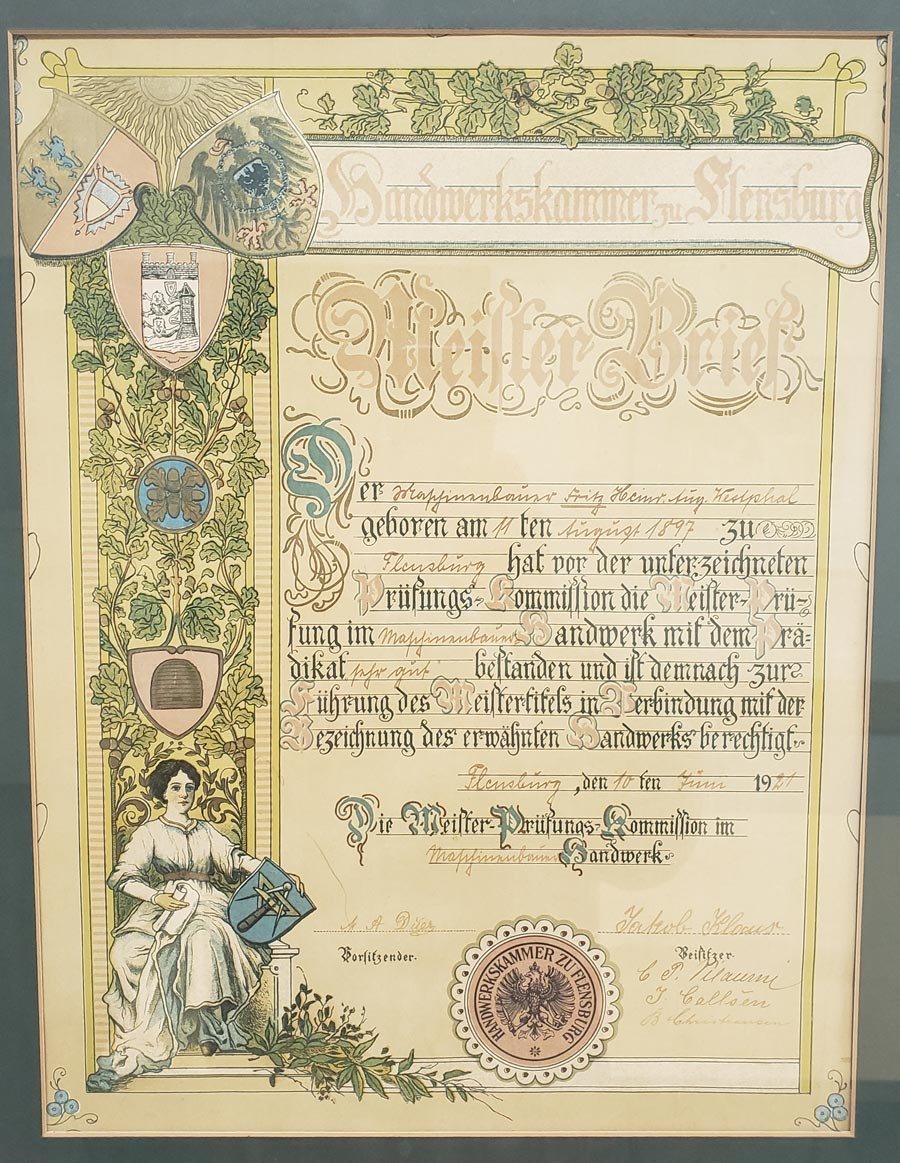 Handwerkskammer zu Flensburg
Meister Brief
Der Maschinenbauer Fritz Heinr. Aug. Westphal
geboren am 11 ten August 1897 zu
Flensburg hat vor der unterzeichneten
Prüfungs-Kommission die Meister-Prü-
fung im Maschinenbauer Handwerk mit dem Prä-
dikat sehr gut bestanden und ist demnach zur
Führung des Meistertitels in Verbindung mit der
Bezeichnung des erwähnten Handwerks berechtigt.
Flensburg, den 10 ten Juni 1921
Die Meister-Prüfungs-Kommission im
Maschinenbauer Handwerk.
Jakob Klaus
Vorsitzender. Beisitzer.
J. Callsen
B Christiansen
HANDWERKSKAMMER ZU FLENSBURG